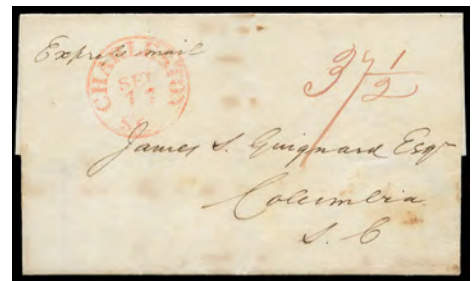 Express mail
CHARLESTON
SEP
S.C.
37 1/2
James S. Guignard Esqr
Columbia
S. C